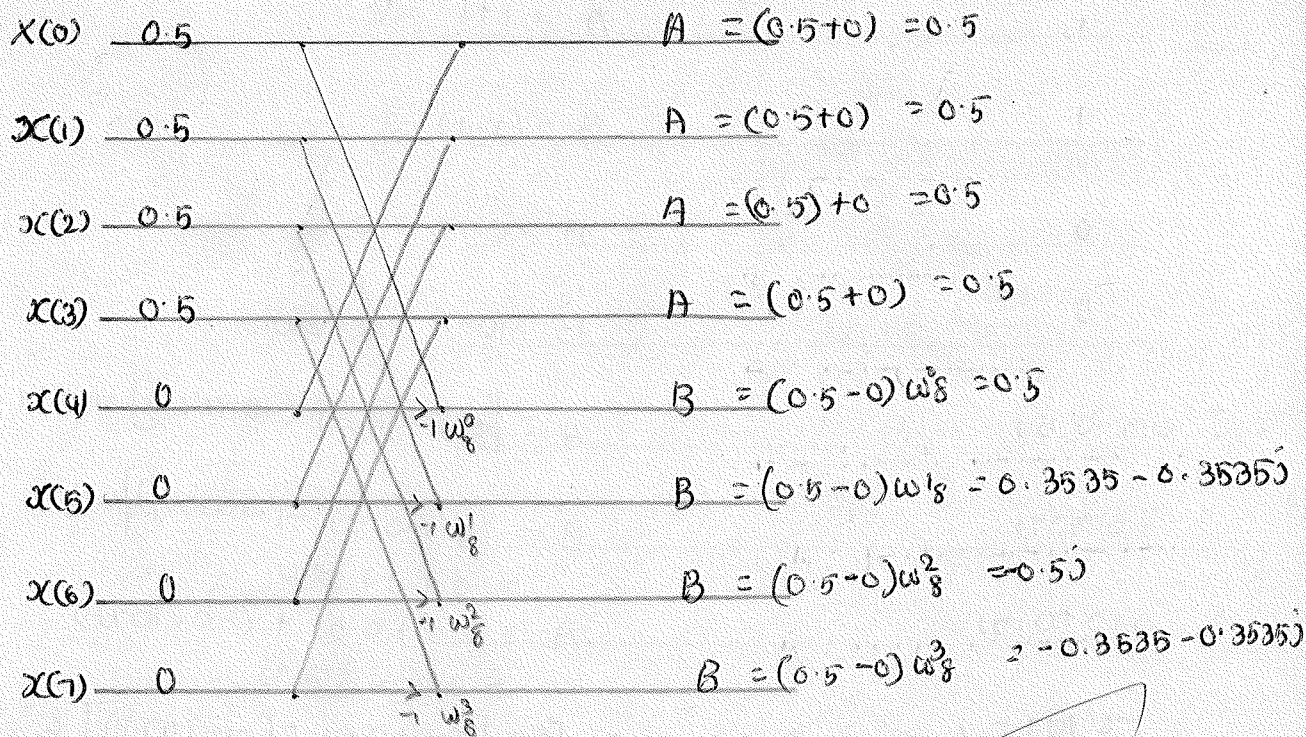 X(0) 0.5 A = (0.5+0) = 0.5
x(1) 0.5 A = (0.5+0) = 0.5
x(2) 0.5 A = (0.5)+0 = 0.5
x(3) 0.5 A = (0.5+0) = 0.5
x(4) 0 -1 ω₈⁰ B = (0.5-0)ω₈⁰ = 0.5
x(5) 0 -1 ω₈¹ B = (0.5-0)ω¹₈ = 0.3535 - 0.3535j
x(6) 0 -1 ω₈² B = (0.5-0)ω₈² = -0.5j
x(7) 0 -1 ω₈³ B = (0.5-0)ω₈³ = -0.3535-0.3535j